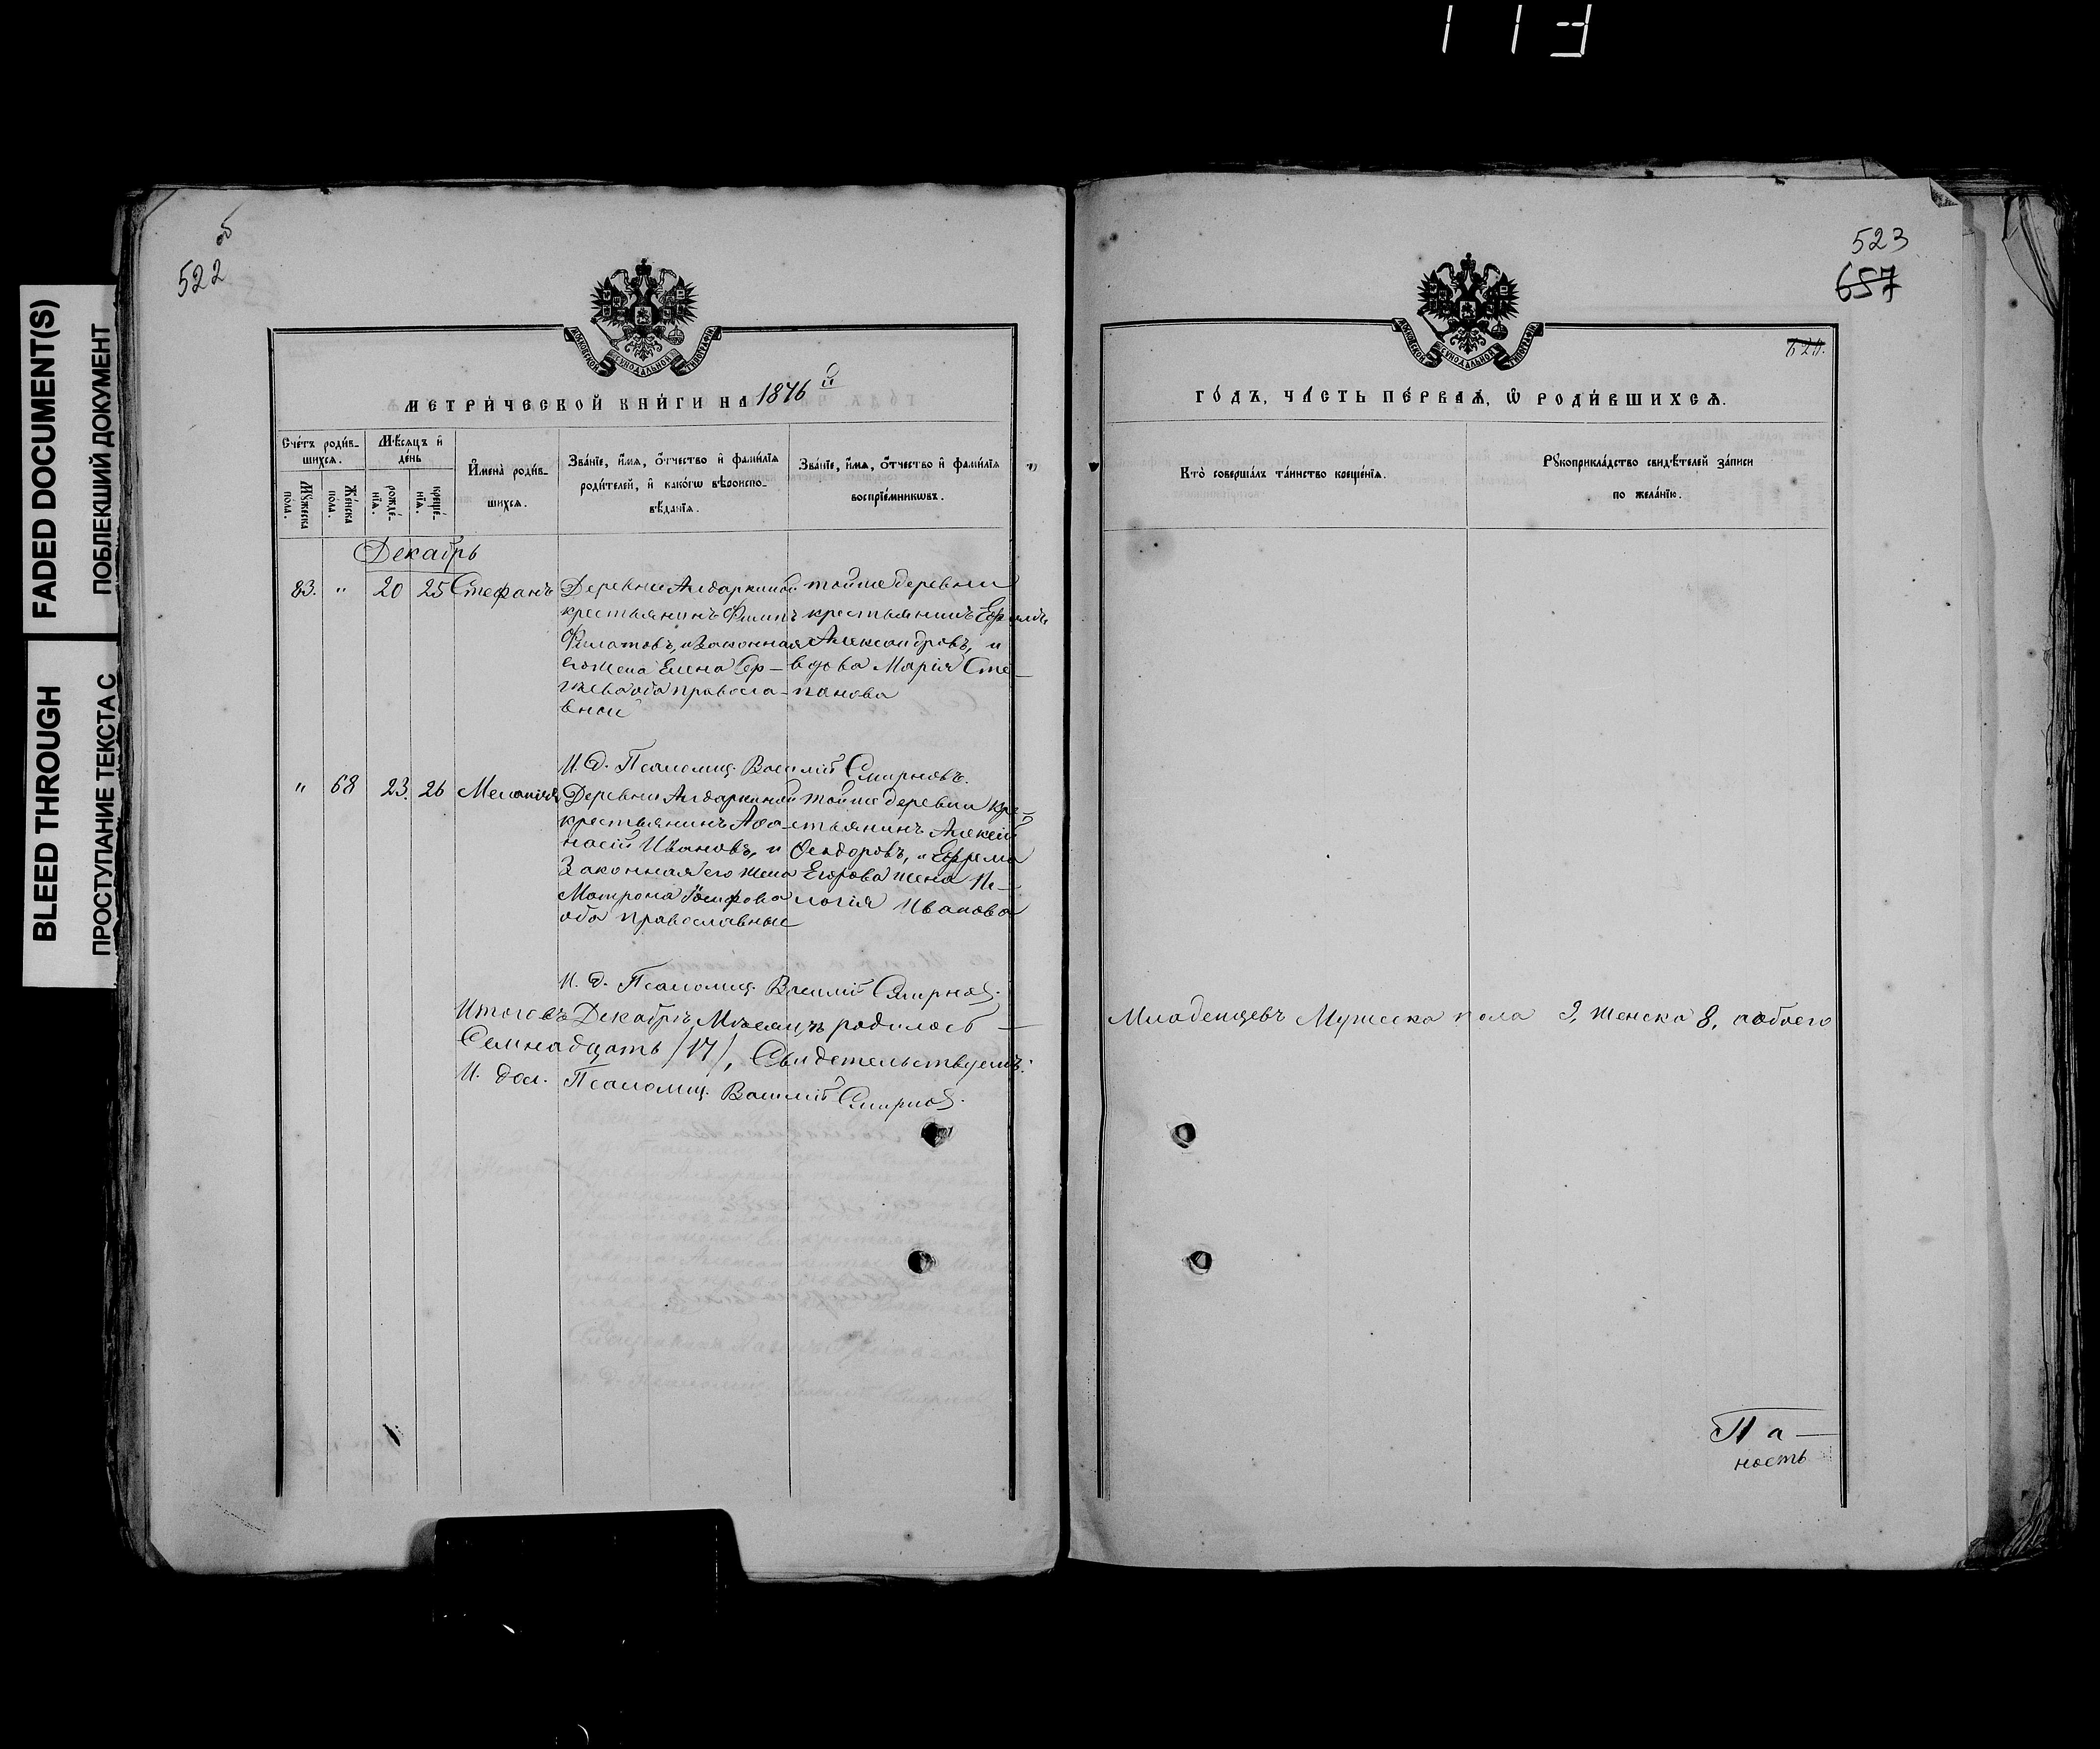 113
FADED DOCUMENT(S)
ПОБЛЕКШИЙ ДОКУМЕНТ
BLEED THROUGH
ПРОСТУПАНИЕ ТЕКСТА С
об
522
МОСКОВСКОЙ СѴНОДАЛЬНОЙ ТИПОГРАФІИ
МЕТРИ́ЧЕСКОЙ КНИ́ГИ НА 1876й
Сче́тъ роди́в-
шихсѧ.
Мꙋжеска пола.
Же́нска пола.
Мѣ́сяцъ и҆ де́нь
рожде́-нїѧ.
креще́-нїѧ.
И҆мена̀ роди́в-
шихсѧ.
Зва́нїе, и҆́мѧ, ѻ҆́тчество и҆ фамилїѧ
роди́телей, и҆ како́гѡ вѣроиспо-
вѣ́данїѧ.
Зва́нїе, и҆́мѧ, ѻ҆́тчество и҆ фамилїѧ
воспрїе́мникѡвъ.
Декабрь
83. " 20 25 Стефанъ
Деревни Алдаркиной
крестьянинъ Филиппъ
Филатовъ, и Законная
его жена Елена Сер-
гѣева оба правосла-
вной
тойже деревни
крестьянинъ Ефимъ
Александровъ, и
вдова Марія Сте-
панова
И. Д. Псаломщ. Василій Смирновъ.
" 68 23. 26 Меланія
Деревни Алдаркиной
крестьянинъ Афа-
насій Ивановъ, и
Законная его жена
Матрона Іосифова
оба православные
тойже деревни кре-
стьянинъ Алексѣй
Ѳеодоровъ, и Ефрема
Егорова жена Пе-
лагія Иванова
И. Д. Псаломщ. Василій Смирнов.
Итого въ Декабрѣ Мѣсяцѣ родилось
Семнадцать /17/, Свидетельствуемъ:
И. дол. Псаломщ. Василій Смирнов.
523
657
МОСКОВСКОЙ СѴНОДАЛЬНОЙ ТИПОГРАФІИ
ГО́ДЪ, ЧА́СТЬ ПЕ́РВАѦ, Ѡ҆ РОДИ́ВШИХСѦ.
Кто̀ соверша́лъ та́инство креще́нїѧ.
Рꙋкоприкла́дство свидѣ́телей за́писи
по жела́нїю.
Младенцевъ Мужеска пола 9, женска 8, а обоего
П а-
ность